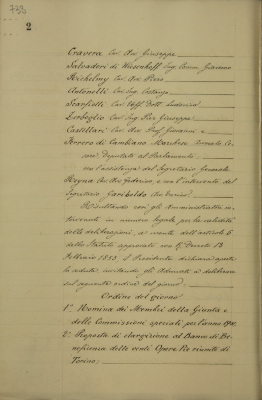 733
2
Cravera Cav. Avv. Giuseppe
Salvadori di Wiesenhoff Ing. Comm. Giacomo
Michelmy Cav. Avv. Piero
Antonelli Cav. Ing. Costanzo
Scarfiotti Cav. Uff. Dott. Lodovico
Zerboglio Cav. Ing. Pier Giuseppe
Castellari Cav. Avv. Prof. Giovanni e
Ferrero di Cambiano Marchese Augusto Ce-
sare Deputato al Parlamento
con l'assistenza del Segretario Generale
Rogna Cav. Avv. Federico e con l'intervento del
Segretario, Gariboldi
Risultando con gli Amministratori in-
tervenuti in numero legale per la validità
delle deliberazioni, a mente dell'articolo 6
dello Statuto approvato con R. Decreto 13
Febbraio 1853 il Presidente dichiara aperta
la seduta invitando gli Adunati a deliberare
sul seguente ordine del giorno:
Ordine del giorno
1.° Nomina dei Membri della Giunta e
delle Commissioni speciali per l'anno
2.° Proposta di elargizione al Banco di Be-
neficenza delle venti Opere Pie riunite di
Torino.